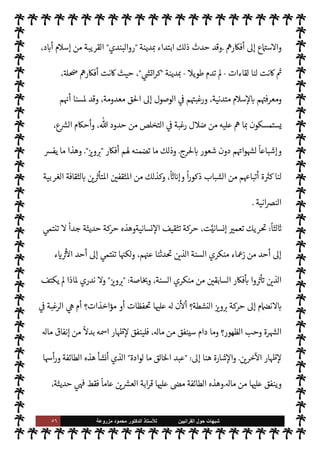 والاستماع إلى أفكارهم .وقد حدث ذلك ابتداء بمدينة "روالبندي" القريبة من إسلام أباد،
ثم كانت لنا لقاءات - لم تدم طويلا - بمدينة "كراتشي"، حيث كانت أفكارهم ضحلة،
ومعرفتهم بالإسلام متدنية. ورغبتهم في الوصول إلى الحق معدومة، وقد لمسنا أنهم
يستمسكون بما هم عليه من ضلال رغبة في التخلص من حدود الله، وأحكام الشرع،
وإشباعاً لشهواتهم دون شعور بالحرج. وذلك ما تضمنه لهم أفكار "برويز". وهذا ما يفسر
لنا كثرة أتباعهم من الشباب ذكوراً وإناثاً، وكذلك من المثقفين المتأثرين بالثقافة الغربية
النصرانية .
ثالثاً: تحريك تعمير إنسانيَّت، حركة تثقيف الإنسانيةوهذه حركة حديثة جداً لا تنتمي
إلى أحد من زعماء منكري السنة الذين تحدثنا عنهم، ولكنها تنتمي إلى أحد الأثرياء
الذين تأثروا بأفكار السابقين من منكري السنة، وبخاصة: "برويز" ولا ندري لماذا لم يكتف
بالانضمام إلى حركة برويز النشطة؟ ألأن له عليها تحفظات أو مؤاخذات؟ أم هي الرغبة في
الشهرة وحب الظهور؟ وما دام سينفق من ماله، فلينفق لإظهار اسمه بدلاً من إنفاق ماله
لإظهار الآخرين. والإشارة هنا إلى: "عبد الخالق ما لوادة" الذي أنشأ هذه الطائفة ورأسها
وينفق عليها من ماله.وهذه الطائفة مضى عليها قرابة العشرين عاماً فقط فهي حديثة،
شبهات حول القرآنيين للأستاذ الدكتور محمود مزروعة ٥٦